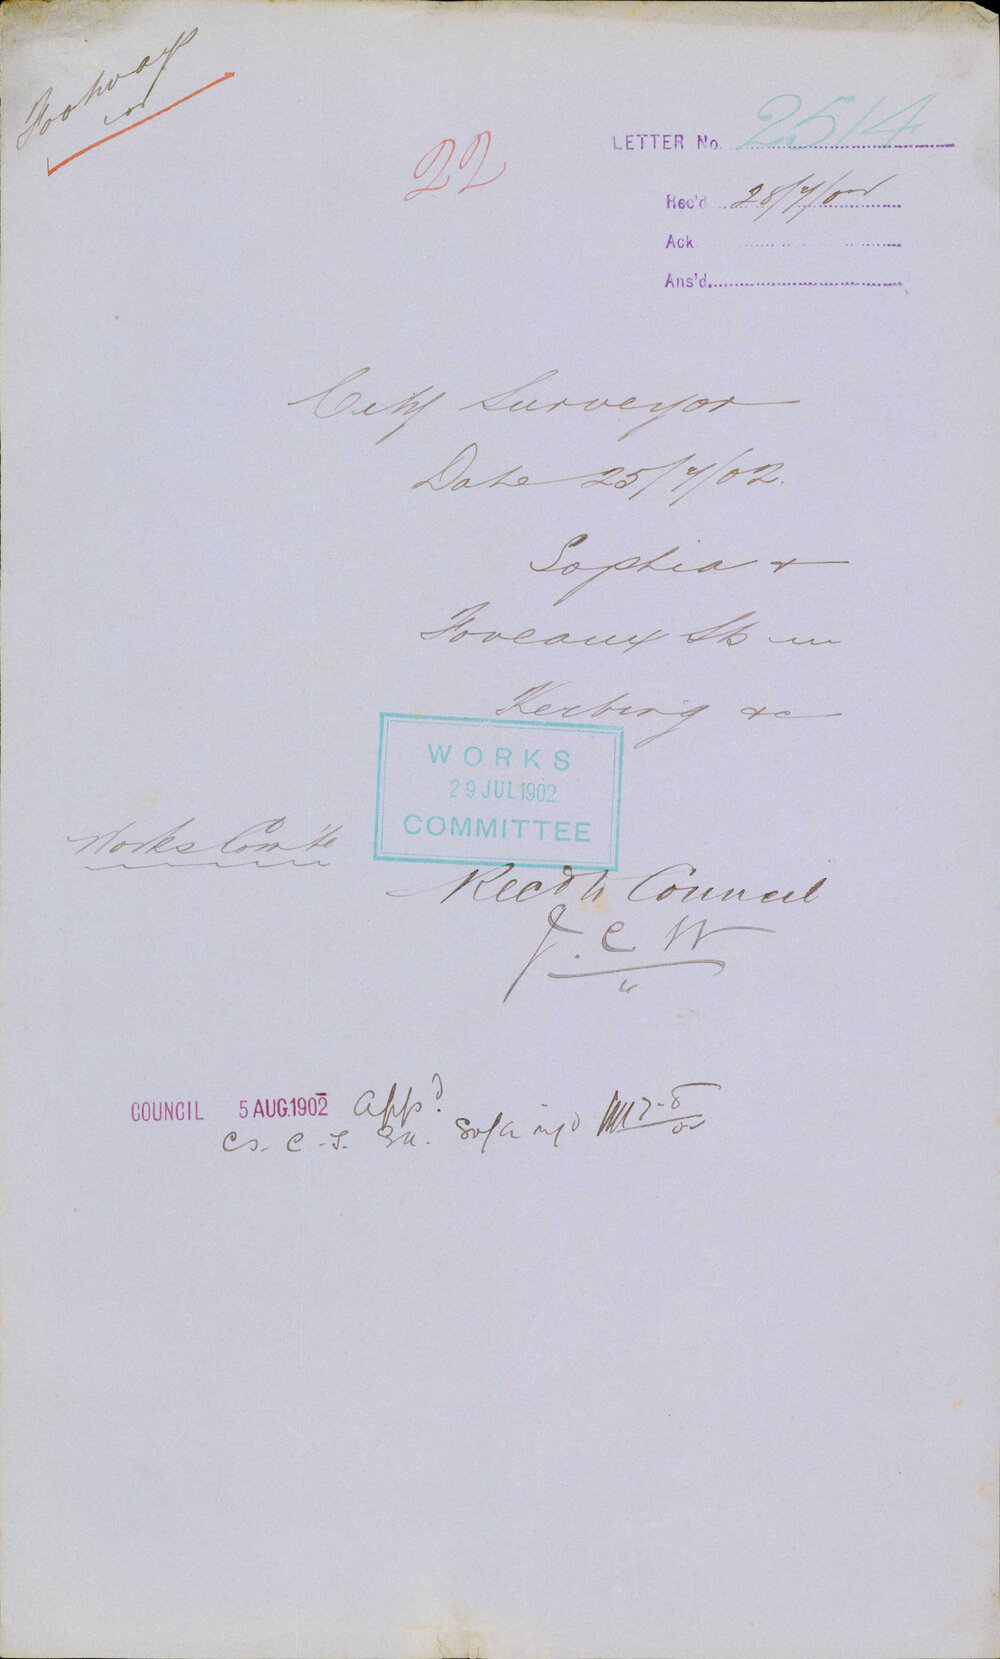 Footway
22
LETTER No. 2514
Rec'd 28/7/02
Ack.
Ans'd.
City Surveyor
Date 25/7/02.
Sophia &
Foveaux Sts
Kerbing &c
WORKS
29 JUL 1902
COMMITTEE
Works Comte
Recd to Council
J. C. W
COUNCIL 5 AUG. 1902 appd.